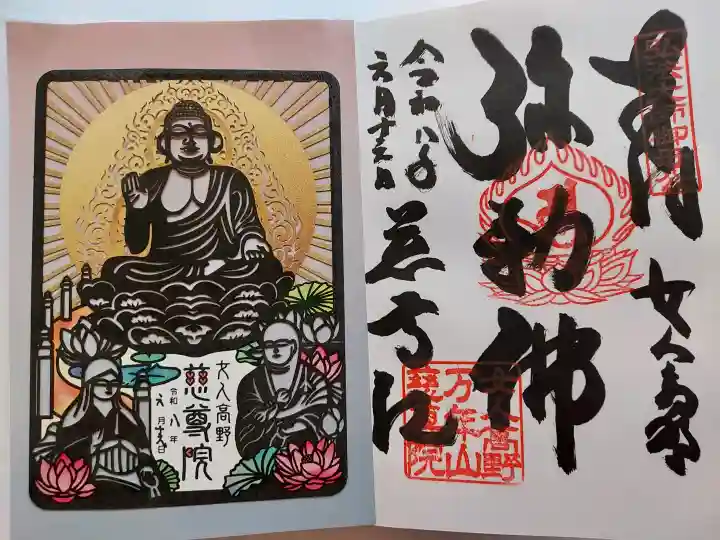 女人高野
慈尊院
令和八年
六月十日
奉拝
女人高野
弥勒佛
令和八年
六月十日
慈尊院
女人高野
万年山
慈尊院